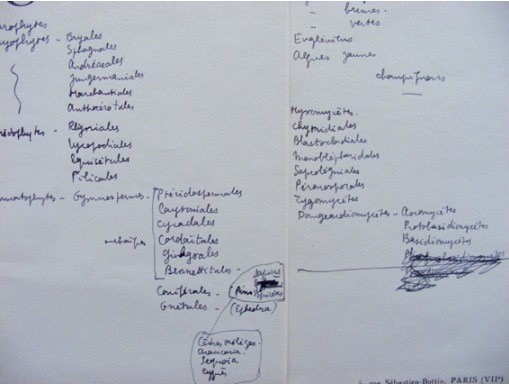 Bryales
Sphagnales
Andréales
Jungermaniales
Marchantiales
Anthocérotales
Lycopodiales
Equisétales
Filicales
Gymnospermes - Ptéridospermales
Caytoniales
Cycadales
Cordaïtales
Ginkgoales
Bennettitales
Coniférales - (Pins)
Gnétales - (Ephedra)
Cèdres
Araucaria
Sequoia
Cyprès
- brunes
- vertes
Algues jaunes
champignons
Myxomycètes
Chytridiales
Blastocladiales
Monoblépharidales
Saprolégniales
Péronosporales
Zygomycètes
Dangeardiomycètes - Ascomycètes
Protobasidiomycètes
Basidiomycètes
rue Sébastien-Bottin, PARIS (VIIe)